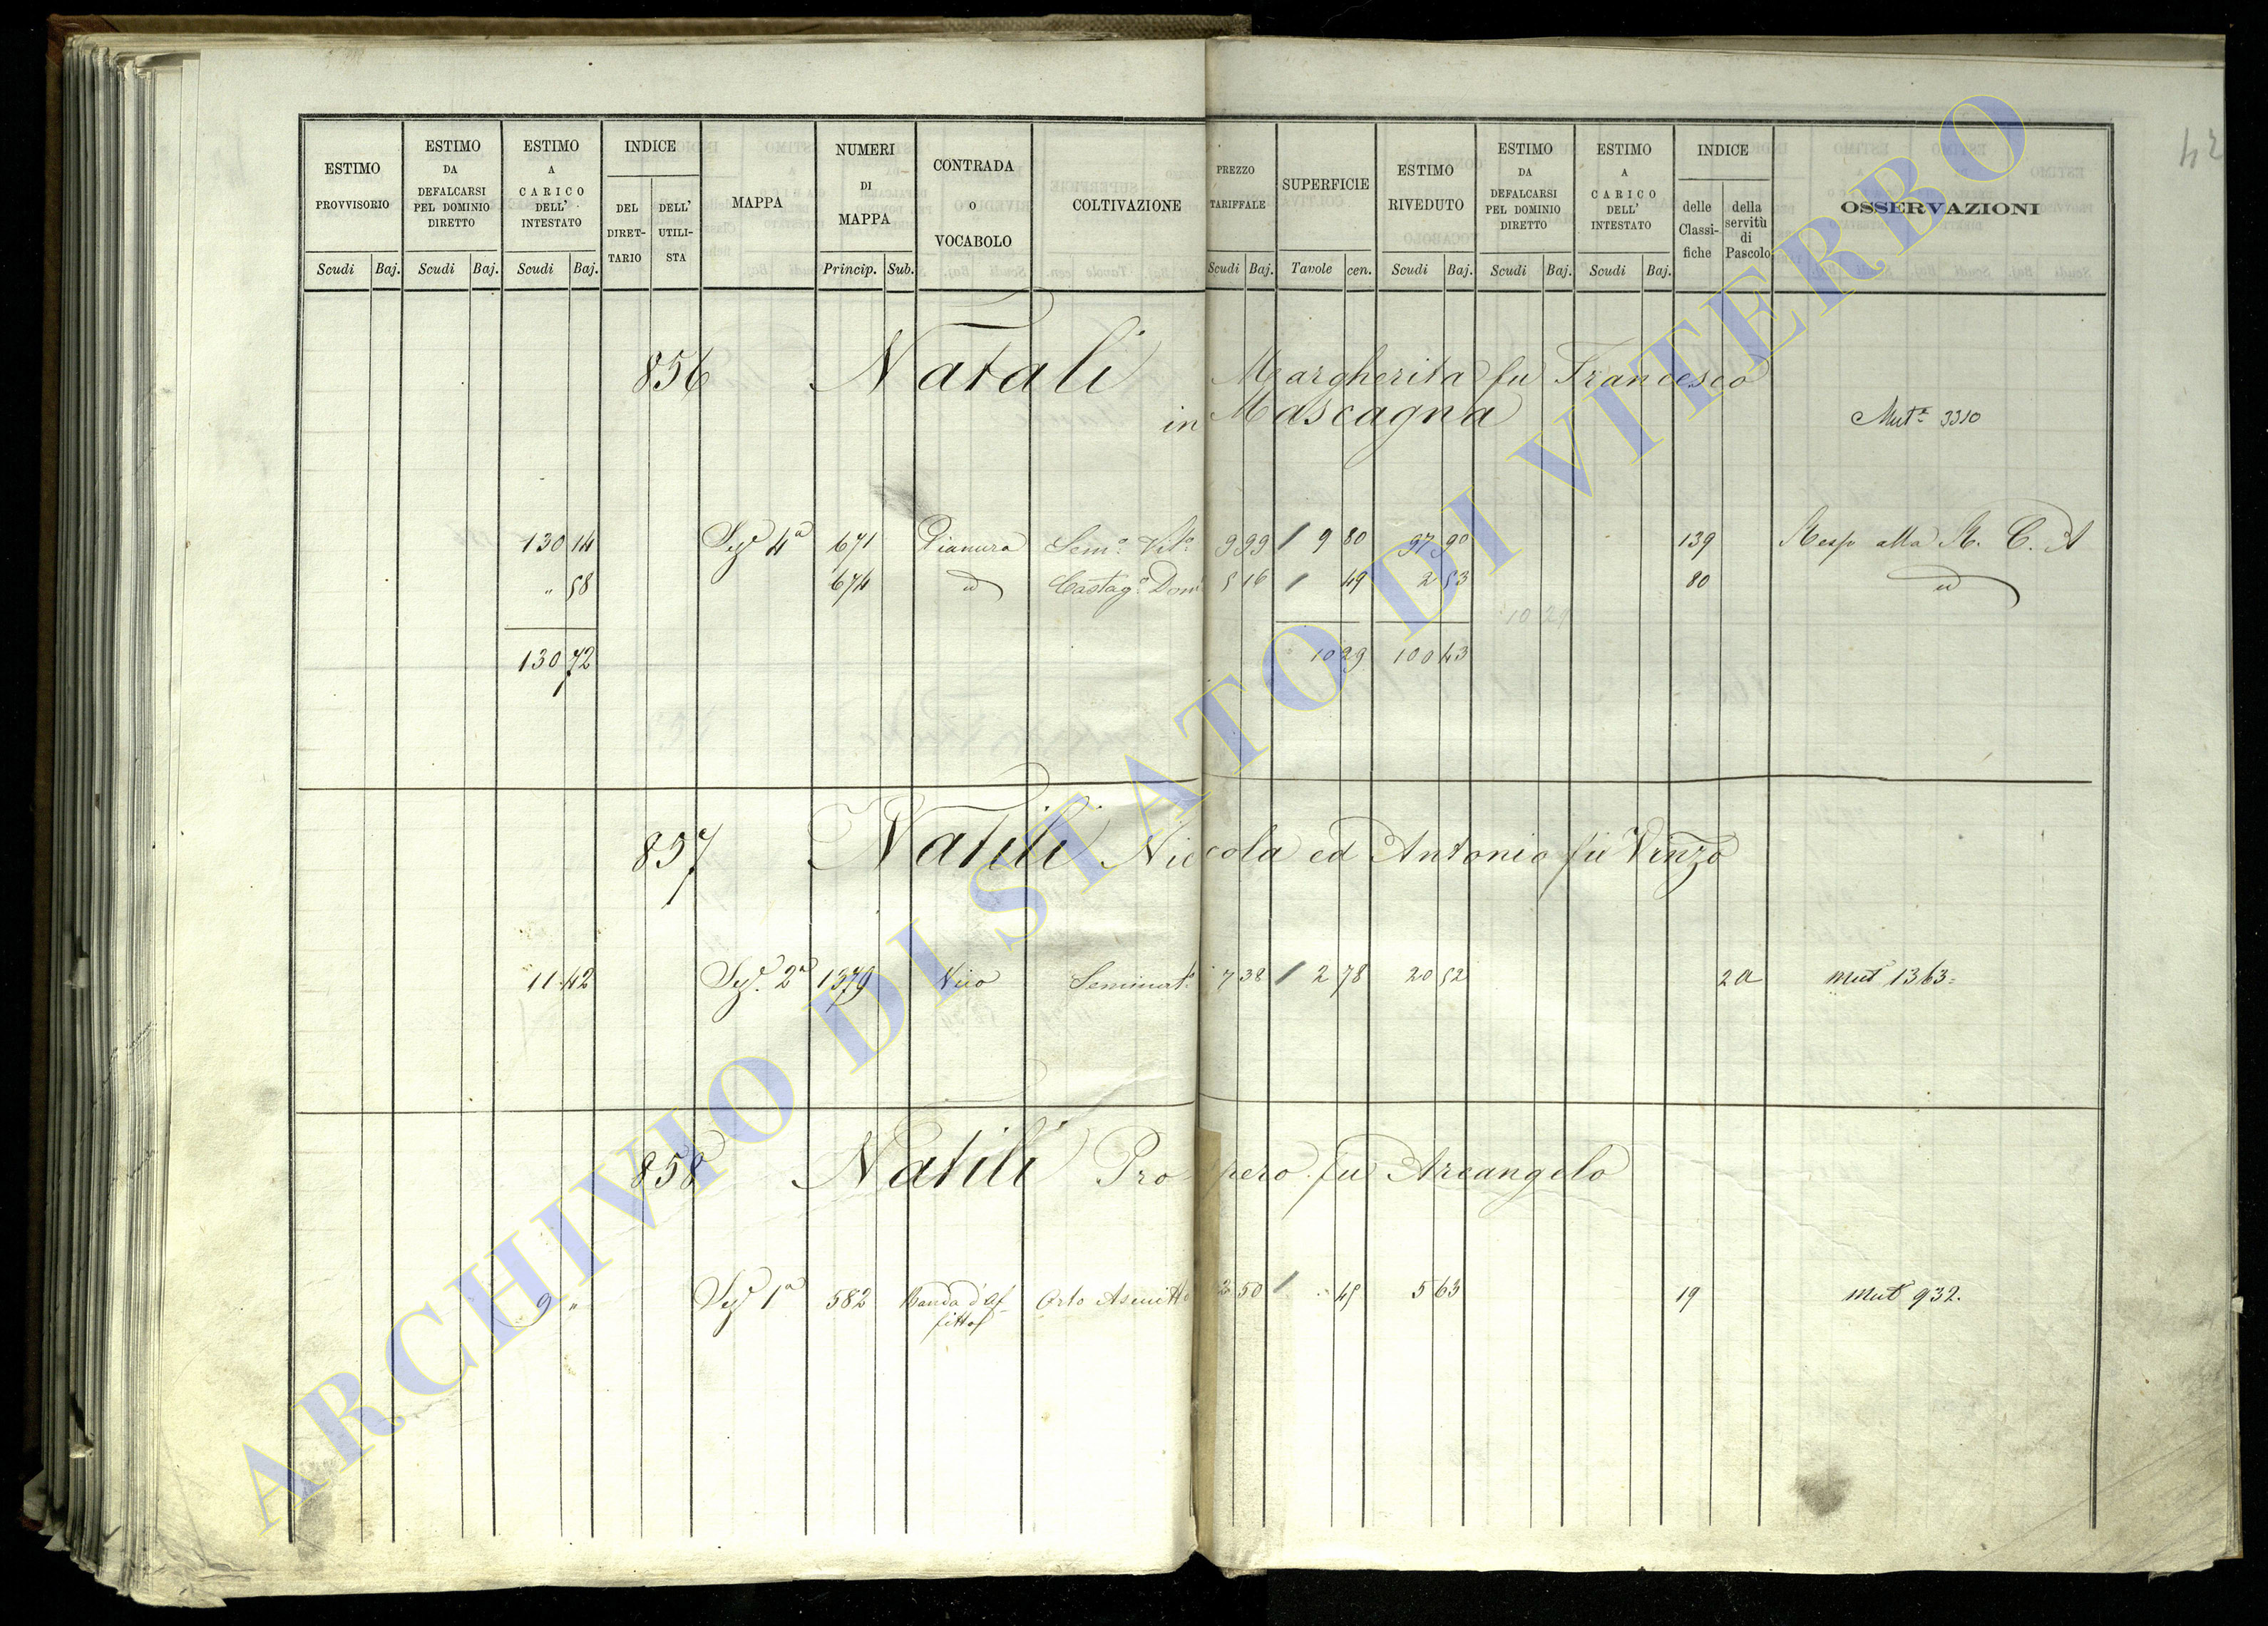 42
ESTIMO PROVVISORIO
ESTIMO DA DEFALCARSI PEL DOMINIO DIRETTO
ESTIMO A CARICO DELL' INTESTATO
INDICE
DEL DIRET-TARIO
DELL' UTILI-STA
MAPPA
NUMERI DI MAPPA
CONTRADA O VOCABOLO
COLTIVAZIONE
PREZZO TARIFFALE
SUPERFICIE
ESTIMO RIVEDUTO
ESTIMO DA DEFALCARSI PEL DOMINIO DIRETTO
ESTIMO A CARICO DELL' INTESTATO
INDICE
delle Classi-fiche
della servitù di Pascolo
OSSERVAZIONI
Scudi Baj. Scudi Baj. Scudi Baj. Princip. Sub. Scudi Baj. Tavole cen. Scudi Baj. Scudi Baj. Scudi Baj.
856 Natali Margherita fu Francesco
in Mascagna Mut.ª 3310
130 14 Sez. 4ª 671 Pianura Sem.º Vit.º 9 99 / 9 80 97 90 139 Resp alla R. C. A
" 58 674 id Castag.º Dom 5 16 / 49 2 53 80 id
10 29
130 72 10 29 100 43
857 Natili Niccola ed Antonio fu Vinzo
11 42 Sez. 2ª 1379 Seminat.º 7 38 / 2 78 20 52 2a Mut 1363=
858 Natili Prospero fu Arcangelo
9 " Sez. 1ª 582 Banda d'Af-fittof Orto Asciutto 50 / 45 5 63 19 Mut 932.
ARCHIVIO DI STATO DI VITERBO